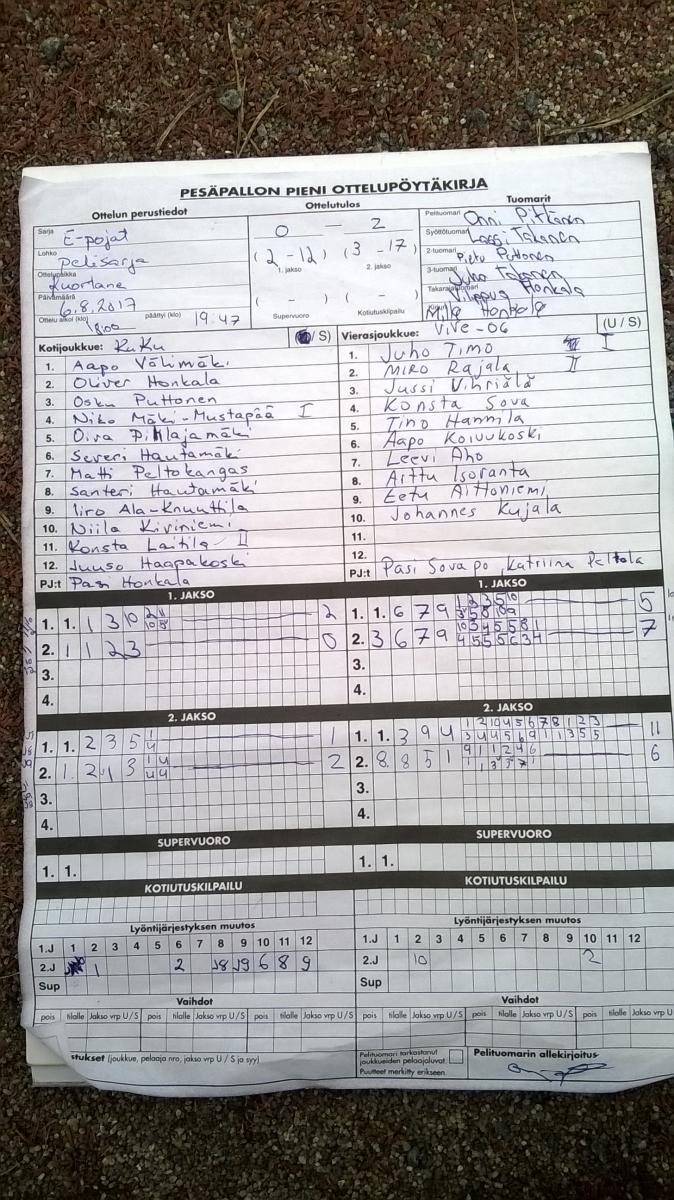 PESÄPALLON PIENI OTTELUPÖYTÄKIRJA
Ottelun perustiedot
Sarja E-pojat
Lohko Pelisarja
Ottelupaikka Kuortane
Päivämäärä 6.8.2017
Ottelu alkoi (klo) 1800 päättyi (klo) 19:47
Ottelutulos
0 – 2
(2 - 12) (3 - 17)
1. jakso 2. jakso
( - ) ( - )
Supervuoro Kotiutuskilpailu
Tuomarit
Pelituomari Onni Pittänen
Syöttötuomari Lassi Takanen
2-tuomari Pietu Puttonen
3-tuomari Juho Takanen
Takarajatuomari Honkala
Honkala
Kotijoukkue: KuKu / S)
1. Aapo Välimäki
2. Oliver Honkala
3. Osku Puttonen
4. Niko Mäki-Mustapää I
5. Oiva Pihlajamäki
6. Severi Hautamäki
7. Matti Peltokangas
8. Santeri Hautamäki
9. Iiro Ala-Knuuttila
10. Niila Kiviniemi
11. Konsta Laitila II
12. Juuso Haapakoski
PJ:t Pasi Honkala
Vierasjoukkue: ViVe-06 (U / S)
1. Juho Timo I
2. MIRO Rajala II
3. Jussi Vihriälä
4. Konsta Sova
5. Tino Hannila
6. Aapo Koivukoski
7. Leevi Aho
8. Arttu Isoranta
9. Eetu Aittoniemi
10. Johannes Kujala
11.
12.
PJ:t Pasi Sovapo, Katriina Peltola
1. JAKSO
1. 1. 1 3 10 2
2. 1 1 2 3 0
3.
4.
1. JAKSO
1. 1. 6 7 9 5
2. 3 6 7 9 7
3.
4.
2. JAKSO
1. 1. 2 3 5 1
2. 1. 2 1 3 2
3.
4.
2. JAKSO
1. 1. 3 9 4 11
2. 8 8 5 1 6
3.
4.
SUPERVUORO
1. 1.
SUPERVUORO
1. 1.
KOTIUTUSKILPAILU
KOTIUTUSKILPAILU
Lyöntijärjestyksen muutos
1.J 1 2 3 4 5 6 7 8 9 10 11 12
2.J 1 2 6 8 9
Sup
Lyöntijärjestyksen muutos
1.J 1 2 3 4 5 6 7 8 9 10 11 12
2.J 10 2
Sup
Vaihdot
pois tilalle Jakso vrp U / S pois tilalle Jakso vrp U / S pois tilalle Jakso vrp U / S
Vaihdot
pois tilalle Jakso vrp U / S pois tilalle Jakso vrp U / S pois tilalle Jakso vrp U
stukset (joukkue, pelaaja nro, jakso vrp U / S ja syy)
Pelituomari tarkastanut
joukkueiden pelaajaluvat
Puutteet merkitty erikseen.
Pelituomarin allekirjoitus